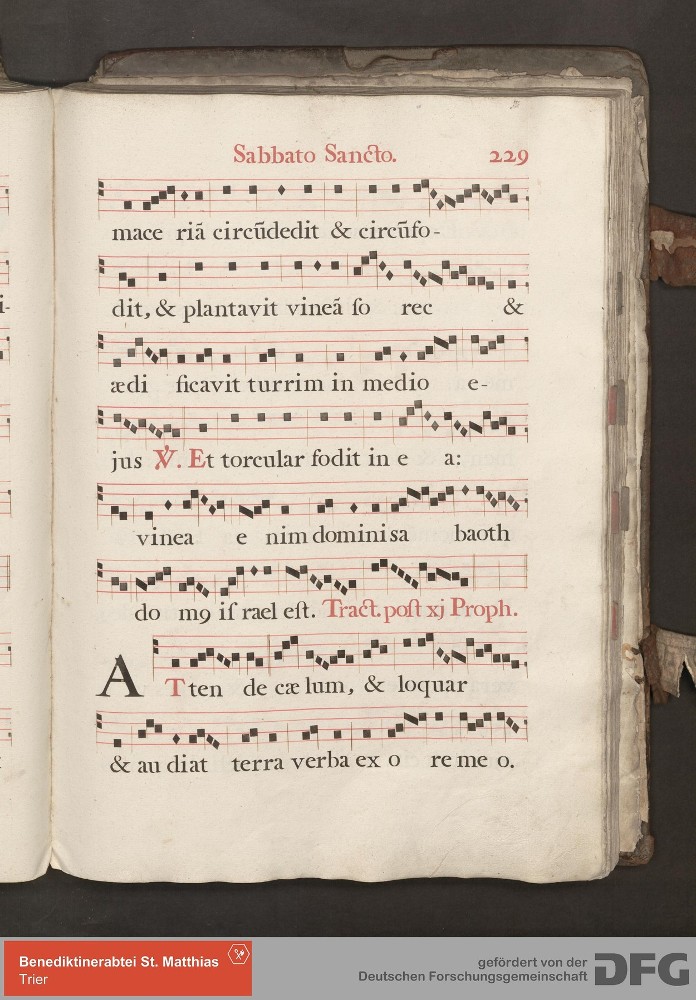 Sabbato Sancto. 229
mace riã circũdedit & circũfo-
dit, & plantavit vineã ſo rec &
ædi ficavit turrim in medio e-
jus ℣. Et torcular fodit in e a:
vinea e nim domini sa baoth
do m9 iſ rael eſt. Tract. poſt xj Proph.
ATten de cæ lum, & loquar
& au diat terra verba ex o re me o.
Benediktinerabtei St. Matthias
Trier
gefördert von der
Deutschen Forschungsgemeinschaft
DFG